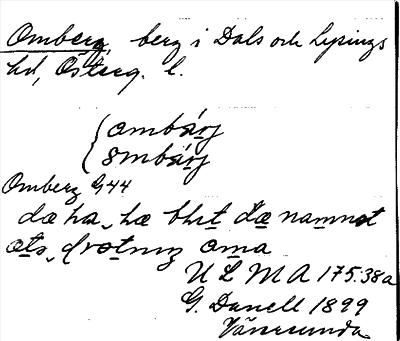 Omberg, berg i Dals och Lysings
hd, Österg. l.
ombárj
ombárj
Omberg G44
dæ ha, hæ bhit dæ namnet
ats, drotniŋ oma
U L M A 175:38a
G. Danell 1899
Väversunda